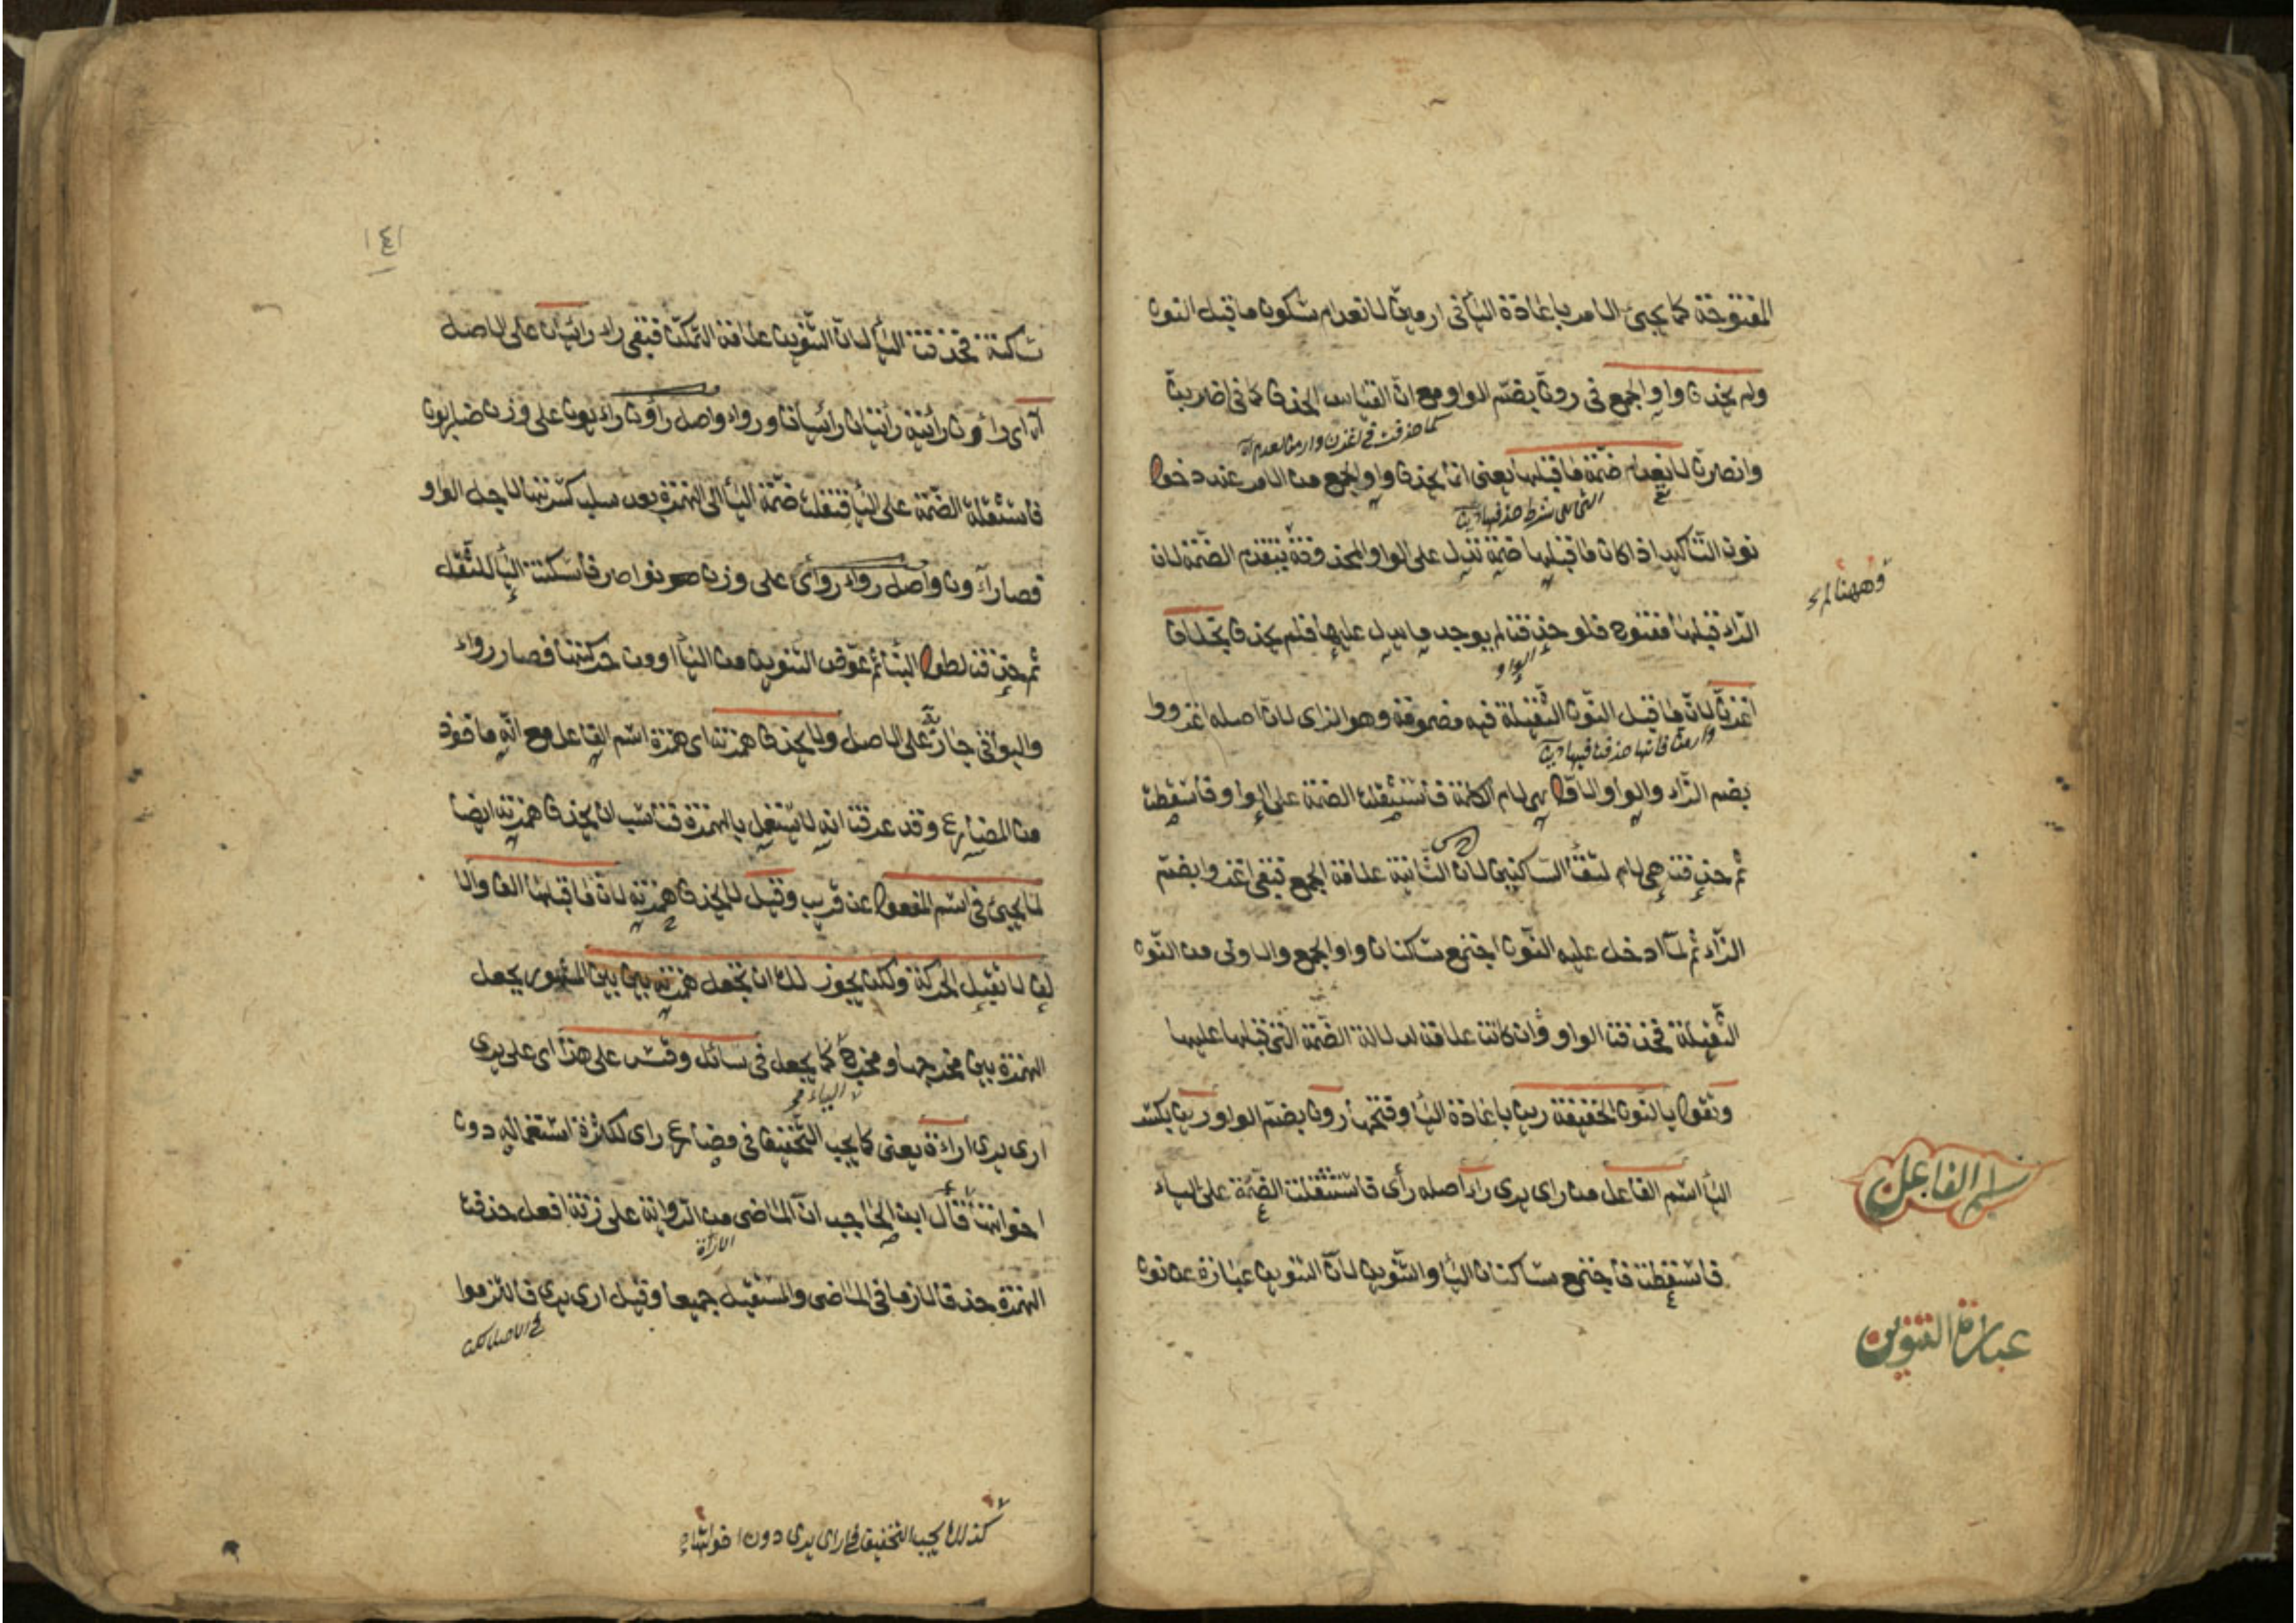 المفتوحة كما يجيئ الامر باعادة الياء فى ارمينّ لانعدام سكون ما قبل النون
ولم يحذف واو الجمع فى رونّ بضم الواو مع ان القياس الحذف كما فى اضربنّ
كما حذفت فى اغزنّ وارمنّ لعدم
وانصرنّ لانعدام ضمة ما قبلها يعنى انما يحذف واو الجمع من الامر عند دخول
نون التأكيد اذا كان ما قبلها ضمة تدل على الواو المحذوفة بتقدم الضمة لان
وههنا لم
الراء قبلها مفتوح فلو حذفت لم يوجد ما يدل عليها فلم يحذف بخلاف
الواو
اغزنّ لان ما قبل النون الثقيلة فيه مضمومة وهو الزاى لان اصله اغزووا
وارمنّ فانها حذفت فيها
بضم الزاء والواو الاول لام الكلمة فاستثقلت الضمة على الواو فأسقطت
ثم حذفت هى لام لتقاء الساكنين لان الثانية علامة الجمع فبقى اغزوا بضم
الزاء ثم لما ادخل عليه النون اجتمع ساكنان واو الجمع والاولى من النون
الثقيلة فحذفت الواو وان كانت علامة لدلالة الضمة التى قبلها عليها
وتقول بالنون الخفيفة رين باعادة الياء وفتحها رون بضم الواو رين بكسر
الياء اسم الفاعل من راى يرى راء اصله رأى فاستثقلت الضمة على الياء
اسم الفاعل
فاسقطت فاجتمع ساكنان الياء والتنوين لان التنوين عبارة عن نون
عبارة التنوين
١٤١
ساكنة فحذفت الياء لان التنوين علامة التمكن فبقى راء رائيان على الاصل
راؤن رائية رائيتان رائيات ورواء واصل راؤن رائيون على وزن ضاربون
فاستثقلت الضمة على الياء فنقلت ضمة الياء الى الهمزة بعد سلب كسرتها لاجل الواو
فصار راؤن واصل رواء رواى على وزن نواصر فأسكنت الياء للثقل
ثم حذفت لطول البناء ثم عوّض التنوين من الياء او من حركتها فصار رواء
والبواقى جار على الاصل ولا يحذف همزته اى همزة اسم الفاعل مع انه مأخوذ
من المضارع وقد عرفت انه لا يستعمل بالهمزة فناسب ان يحذف همزته ايضا
لما يجيئ فى اسم المفعول عن قريب وقيل لا يحذف همزته لان ما قبلها الف والا
لف لا تقبل الحركة ولكن يجوز لك ان تجعل همزته بين بين المشهور بجعل
الهمزة بين مخرجها ومخرج كما يجعل فى سائل وقس على هذا اى على يرى
الياء
ارى يرى اراءة يعنى كما يجب التخفيف فى مضارع راى لكثرة استعماله دون
اخواتها قال ابن الحاجب ان الماضى من الرواية على زنة افعل حذفت
الاراءة
الهمزة حذفا لازما فى الماضى والمستقبل جميعا وقيل ارى يرى فالتزموا
فى الاصل لكن
كذلك يجب التخفيف فى ارى يرى دون اخواتها